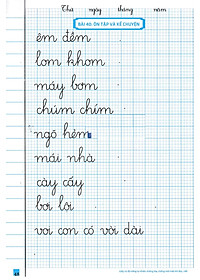 Thứ ngày tháng năm
BÀI 40. ÔN TẬP VÀ KỂ CHUYỆN
êm đềm
lom khom
máy bơm
chúm chím
ngõ hẻm
mái nhà
cày cấy
bơi lội
voi con có vòi dài